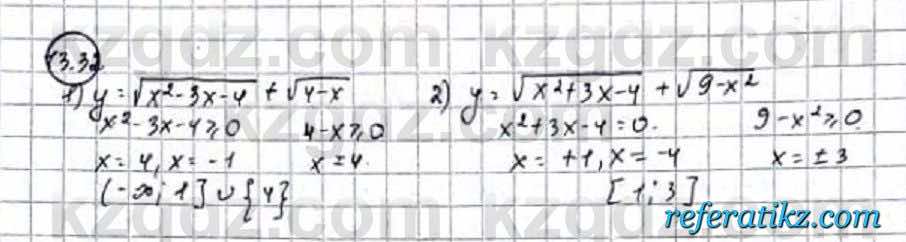 13.32
1) y = √(x²-3x-4) + √(4-x)
x²-3x-4⩾0 4-x⩾0
x = 4, x = -1 x = 4.
(-∞; 1] ∪ {4}
2) y = √(x²+3x-4) + √(9-x²)
x²+3x-4=0. 9-x²⩾0.
x = +1, x = -4 x = ±3
[1; 3]
referatikz.com